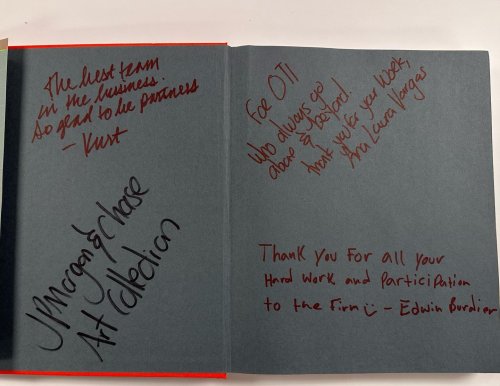 The best team
in the business.
So glad to be partners
- Kurt
JPMorgan & Chase
Art Collection
For OTI
Who always go
above & beyond.
Thank you for your work,
Ana Laura Vargas
Thank you For all your
Hard Work and Participation
to the Firm :) - Edwin Burdier